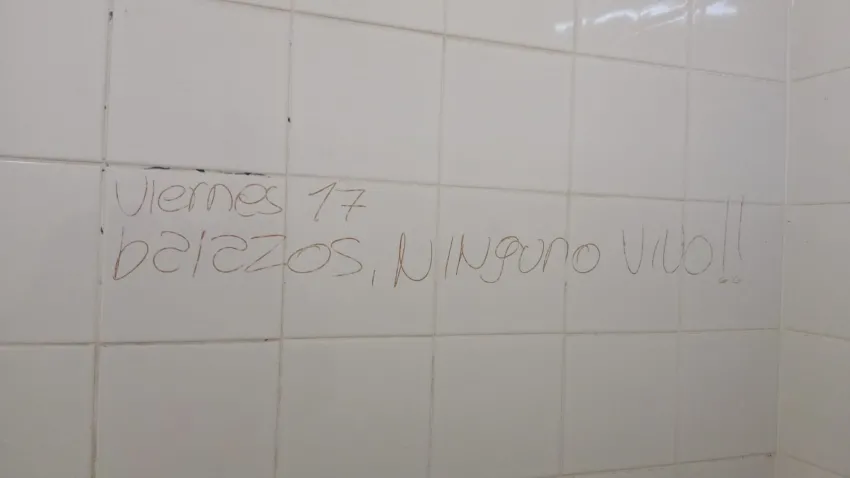 Viernes 17
balazos, NINguno VIVO!!